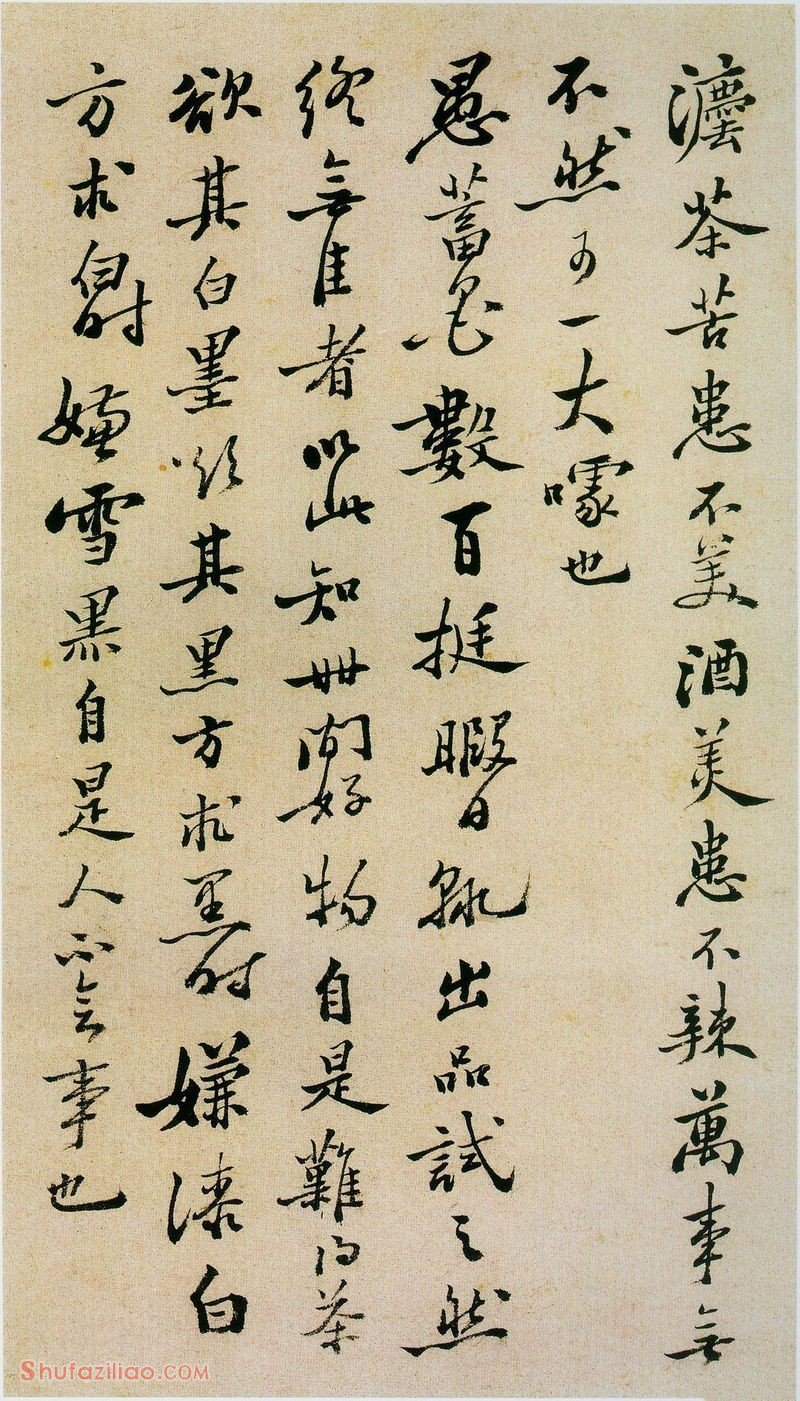 茶苦患不美酒美患不辣萬事無
不然可一大噱也
愚蓄墨數百挺暇日輒出品試之然
終無佳者以此知世間好物自是難得茶
欲其白墨欲其黑方求黑時嫌漆白
方求白時嫌雪黑自是人不會事也
Shufaziliao.COM